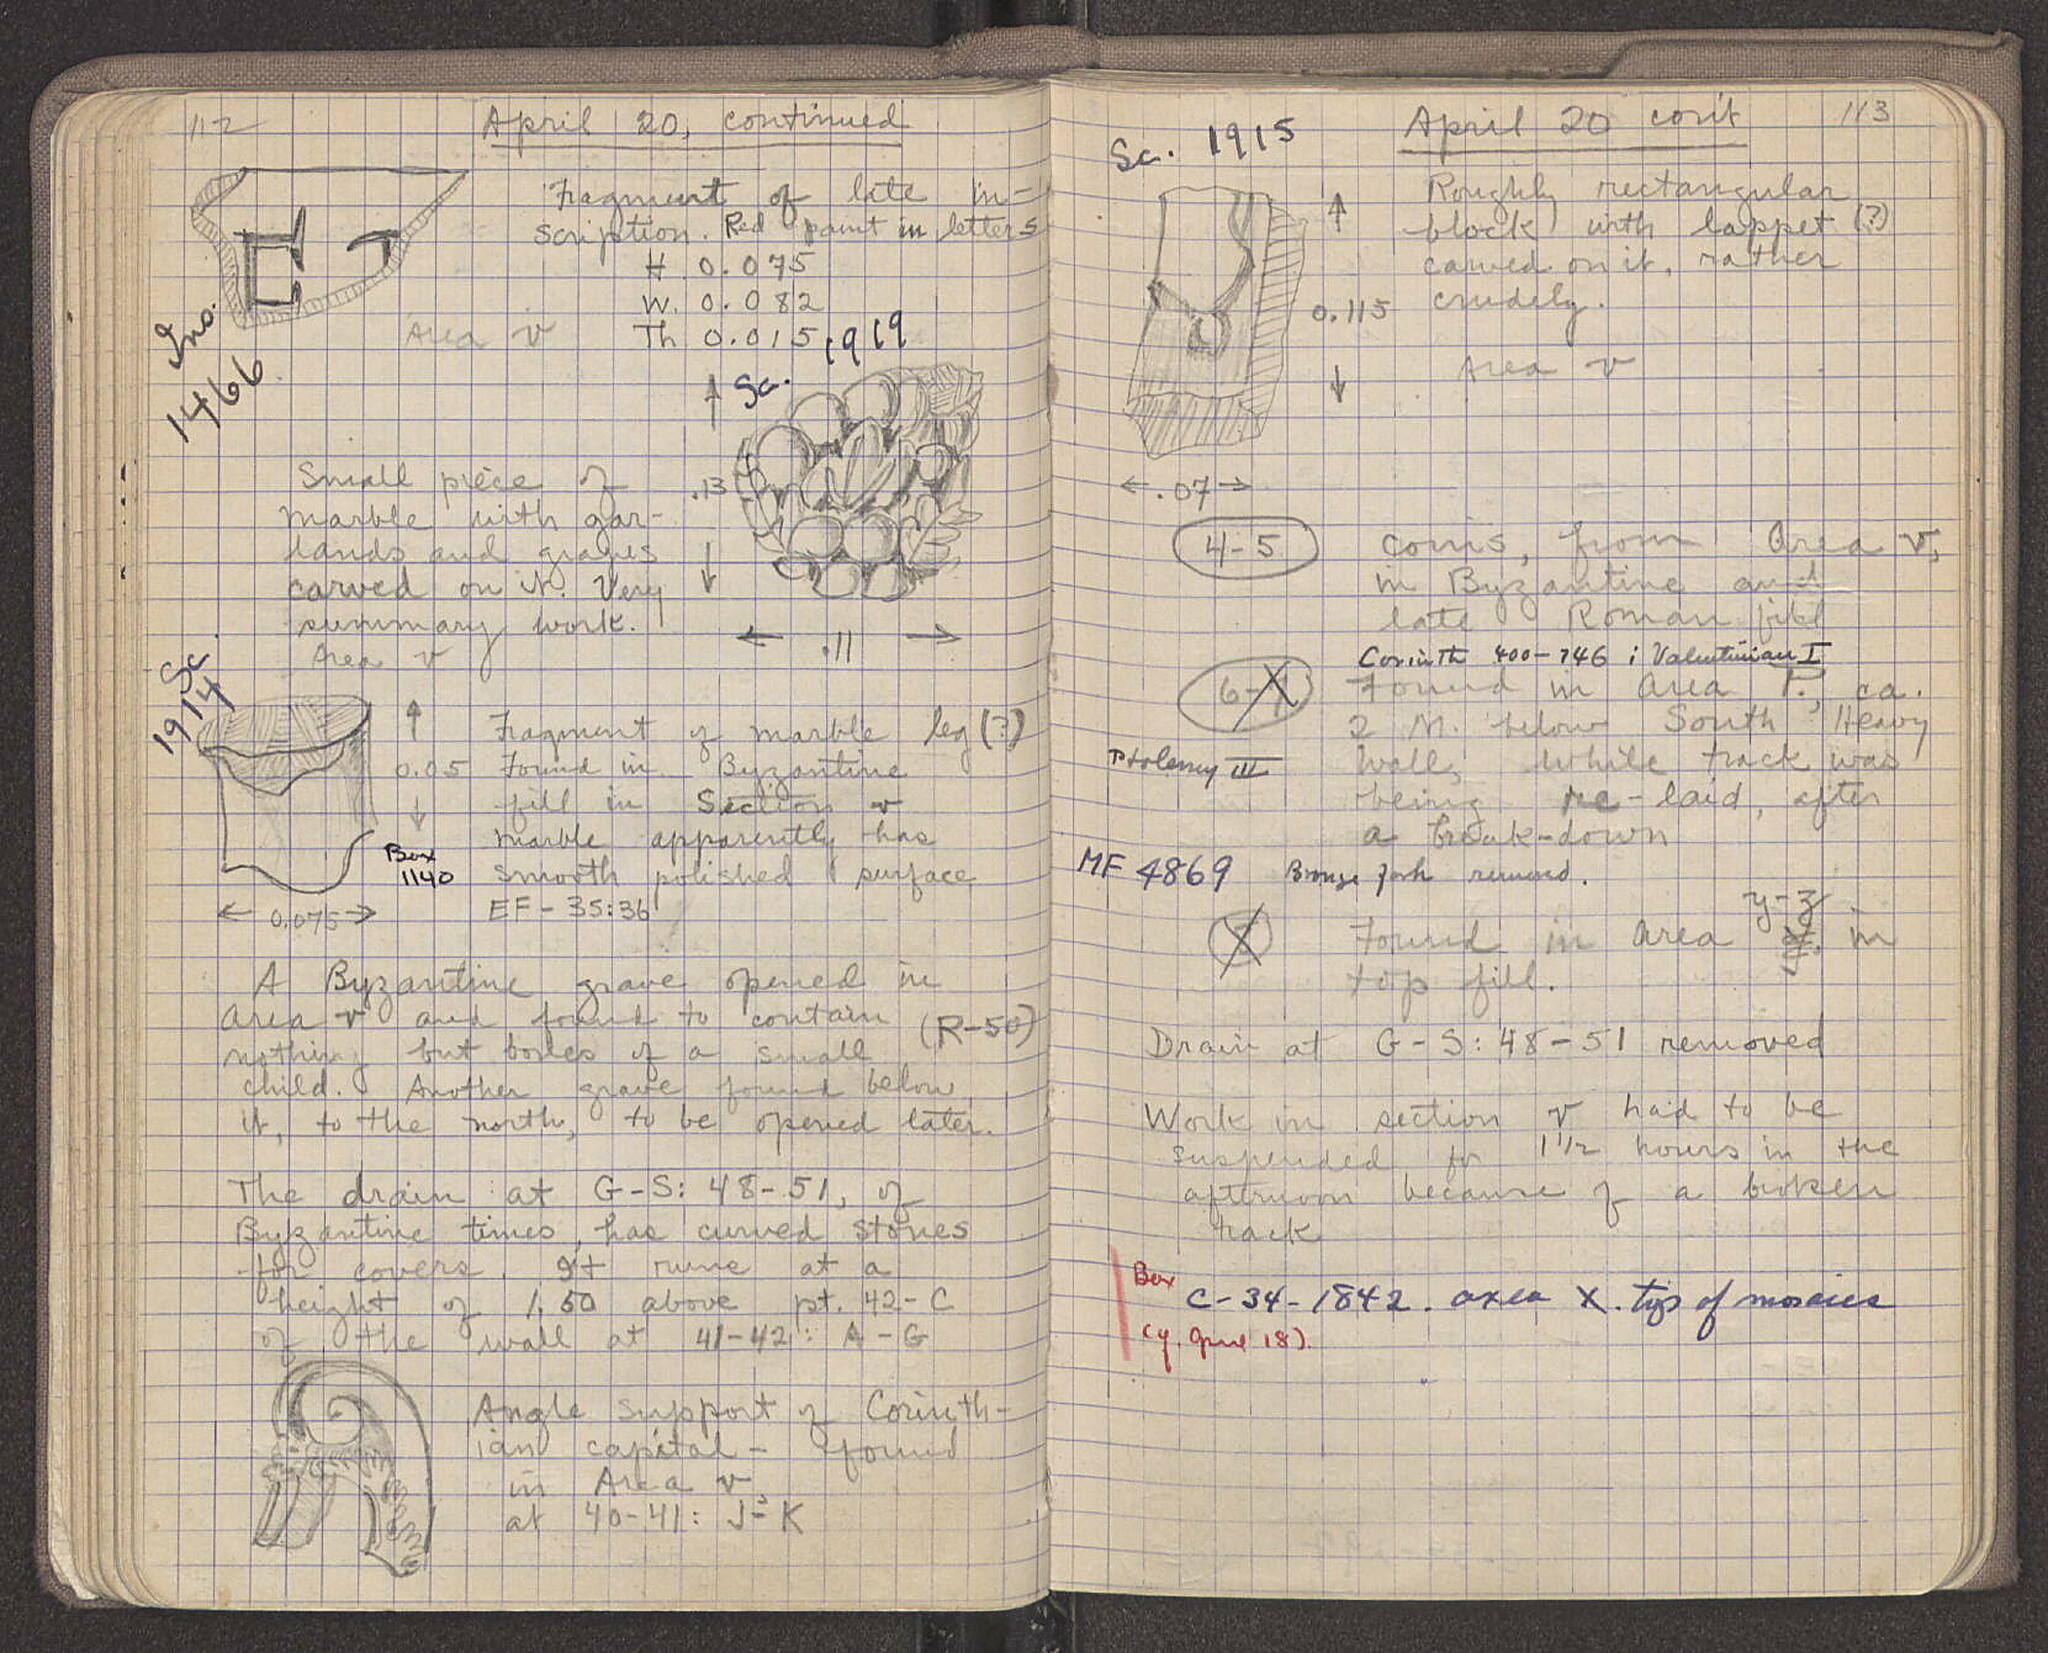 112
April 20, continued
Fragment of late in-
scription. Red paint in letters
H. 0.075
W. 0.082
Area v
Th 0.015
Ino.
1466
Sc. 1919
Small piece of
marble with gar-
lands and grapes
carved on it. Very
summary work.
Area v
.13
.11
Sc.
1914
Fragment of marble leg (?)
0.05
Found in Byzantine
fill in Section v
marble apparently has
smooth polished surface
Box
1140
EF - 35:36
0.075
A Byzantine grave opened in
Area v and found to contain (R-50)
nothing but bones of a small
child. Another grave found below
it, to the north, to be opened later.
The drain at G-S: 48-51, of
Byzantine times, has curved stones
for covers. It runs at a
height of 1.50 above pt. 42-C
of the wall at 41-42: A-G
Angle support of Corinth-
ian capital - found
in Area v,
at 40-41: J-K
April 20 con't
113
Sc. 1915
Roughly rectangular
block with lappet (?)
carved on it, rather
crudely.
0.115
Area v
.07
4-5
coins, from Area v,
in Byzantine and
late Roman fill
Corinth 400-146; Valentinian I
6-
Found in Area P., ca.
2 M. below South Heavy
Ptolemy III
Wall, while track was
being re-laid, after
a break-down
MF 4869 Bronze fork removed.
y-z
Found in Area in
top fill.
Drain at G-S: 48-51 removed
Work in section v had to be
suspended for 1 1/2 hours in the
afternoon because of a broken
track
Box
C-34-1842. area X. top of mosaics
18).